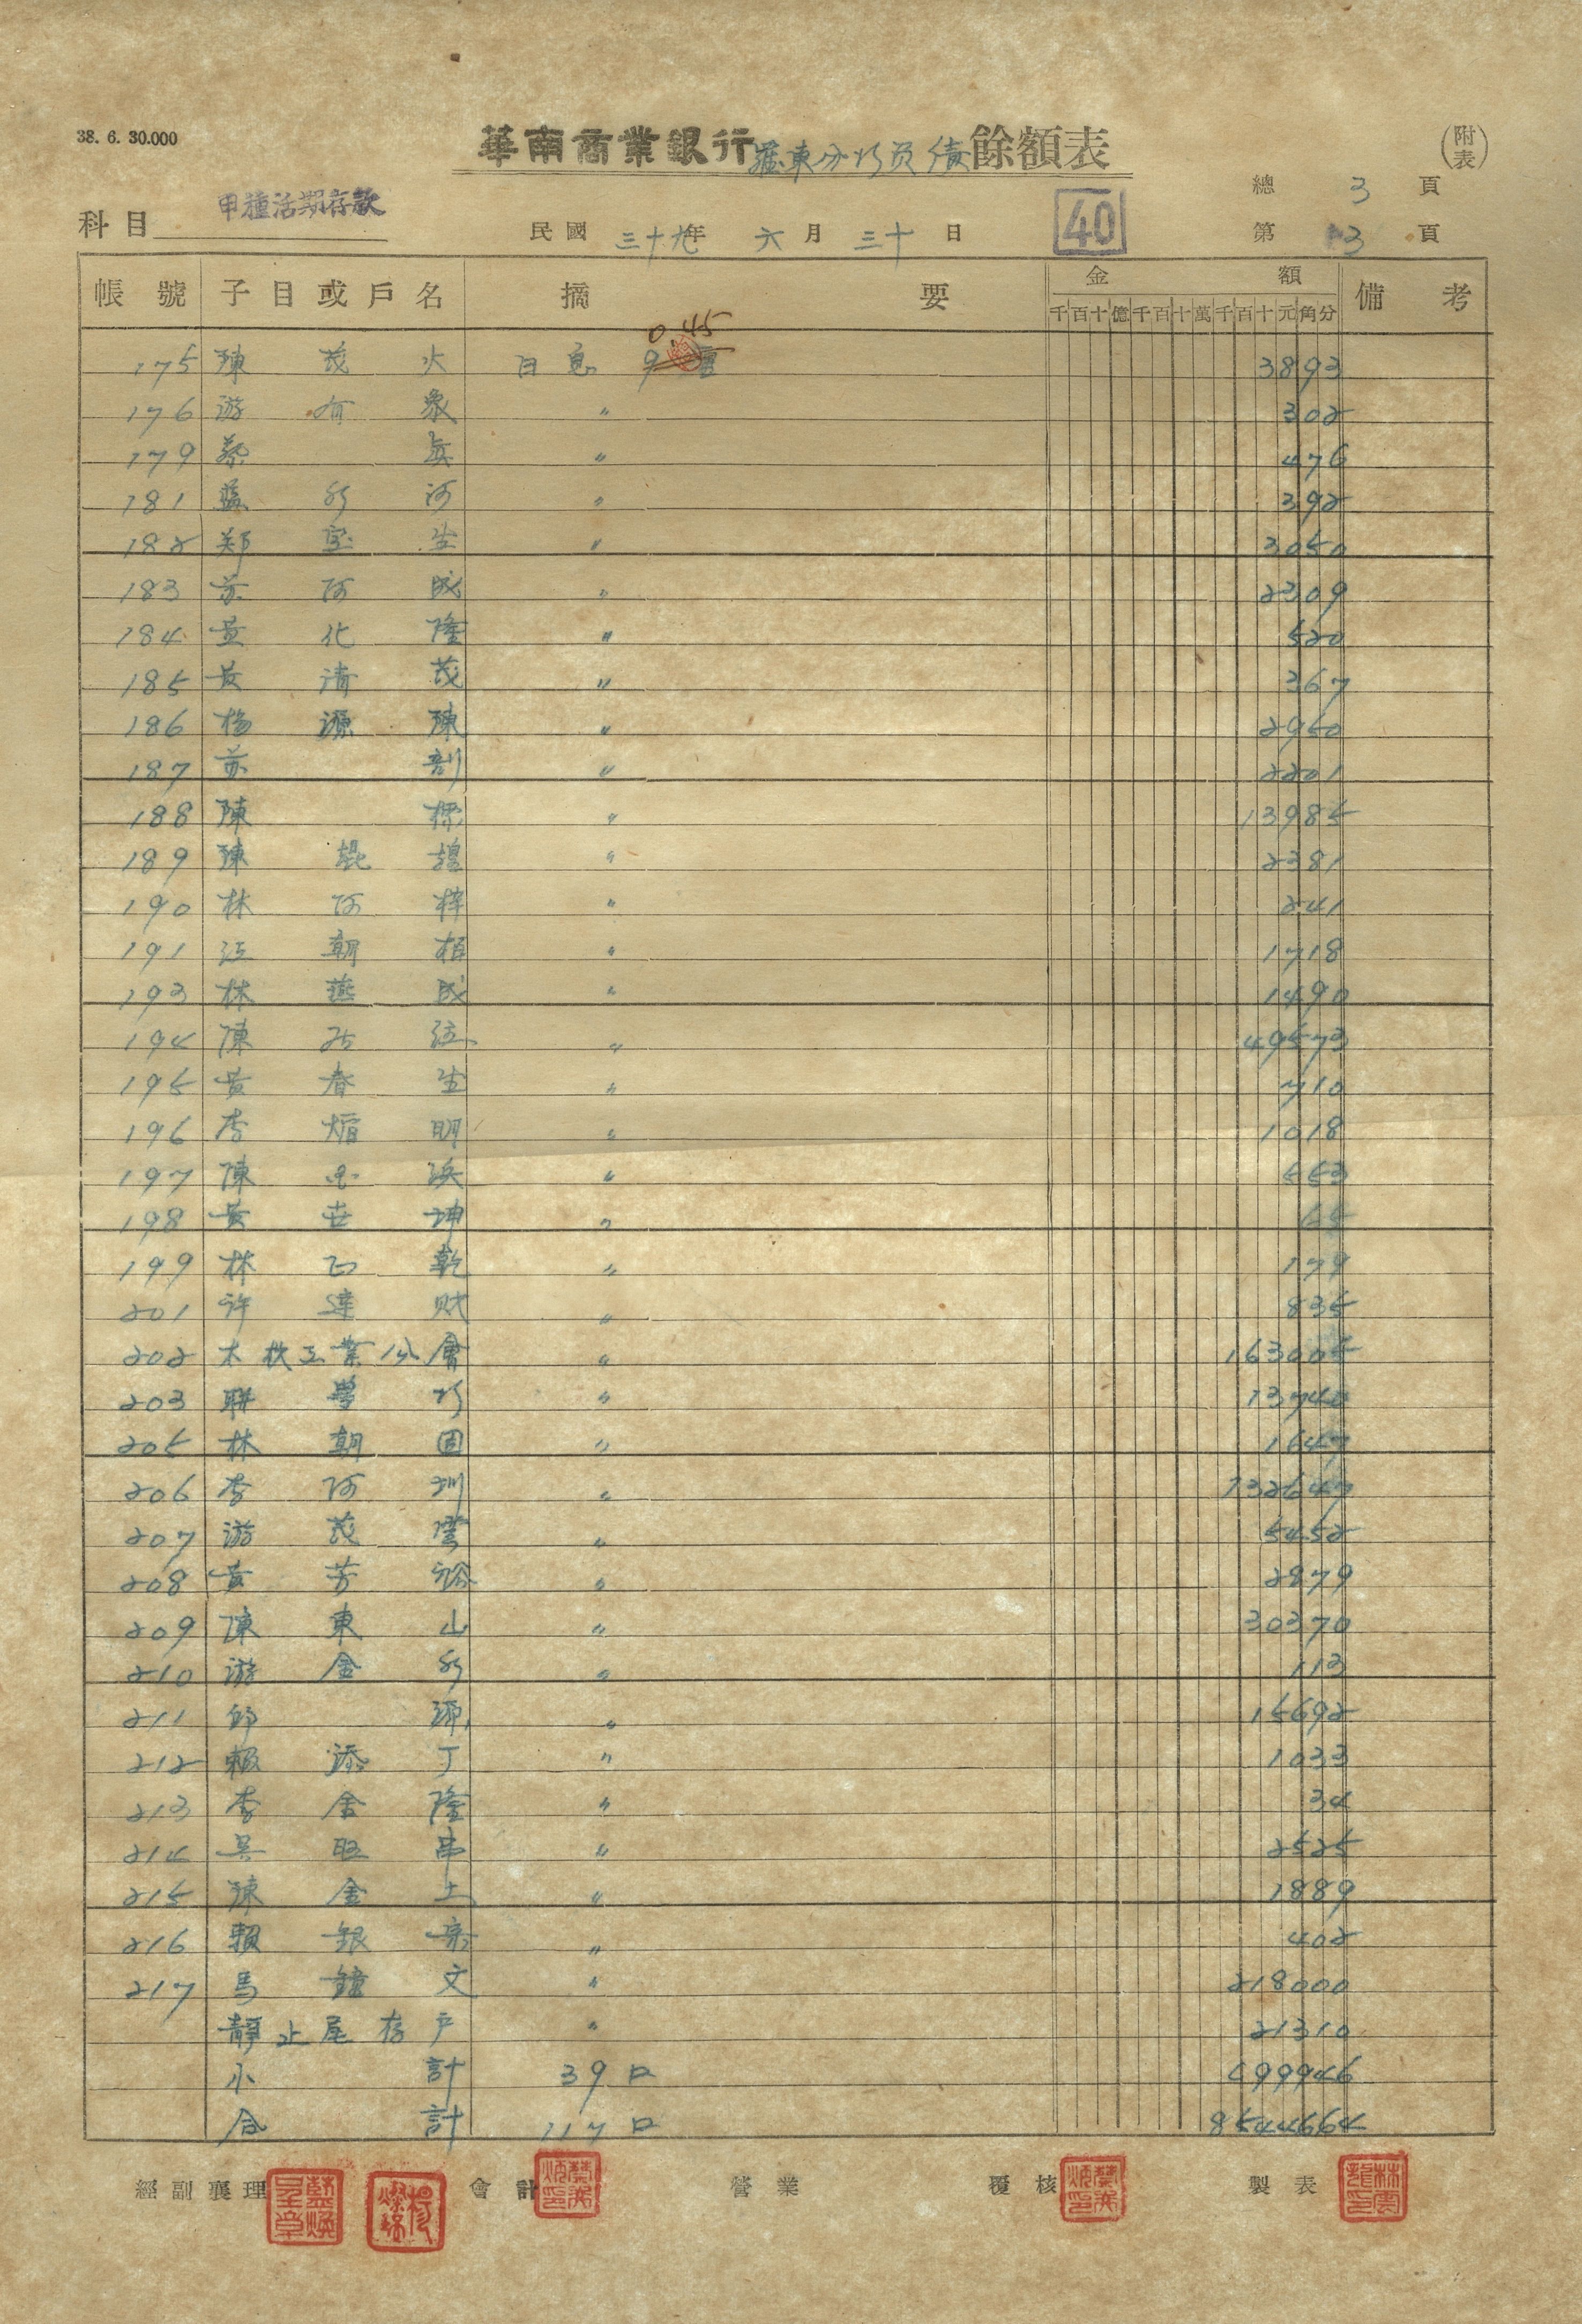 38. 6. 30.000
華南商業銀行羅東分行負債餘額表
(附表)
總 3 頁
科目 甲種活期存款
民國 三十九年 六月 三十日
40
第 3 頁
帳號 子目或戶名 摘要 金額 備考
千百十億千百十萬千百十元角分
0.45
175 陳茂火 日息 3893
176 游有象 〃 302
179 蔡真 〃 476
181 藍 河 〃 392
182 鄭宝生 〃 3050
183 黃阿成 〃 2309
184 黃化隆 〃 520
185 黃清茂 〃 367
186 楊源陳 〃 2950
187 苏 〃 2201
188 陳標 〃 13985
189 陳 〃 2381
190 林阿梓 〃 241
191 江朝栢 〃 1718
193 林 成 〃 1490
194 陳 〃 49573
195 黃春生 〃 710
196 李 明 〃 1018
197 陳 浜 〃 553
198 黃世坤 〃 65
199 林 乾 〃 179
201 許達財 〃 835
202 木材工業公會 〃 163005
203 聯 行 〃 13740
205 林朝固 〃 1647
206 李阿圳 〃 132647
207 游茂雲 〃 5452
208 黃芳裕 〃 2879
209 陳東山 〃 30370
210 游金 〃 113
211 邱源 〃 15692
212 賴添丁 〃 1033
213 李金隆 〃 34
214 吳 〃 2525
215 陳金土 〃 1889
216 賴銀 〃 402
217 馬鐘文 〃 218000
靜止尾存戶 〃 21310
小計 39口 699946
合計 117口
經副襄理 會計 營業 覆核 製表